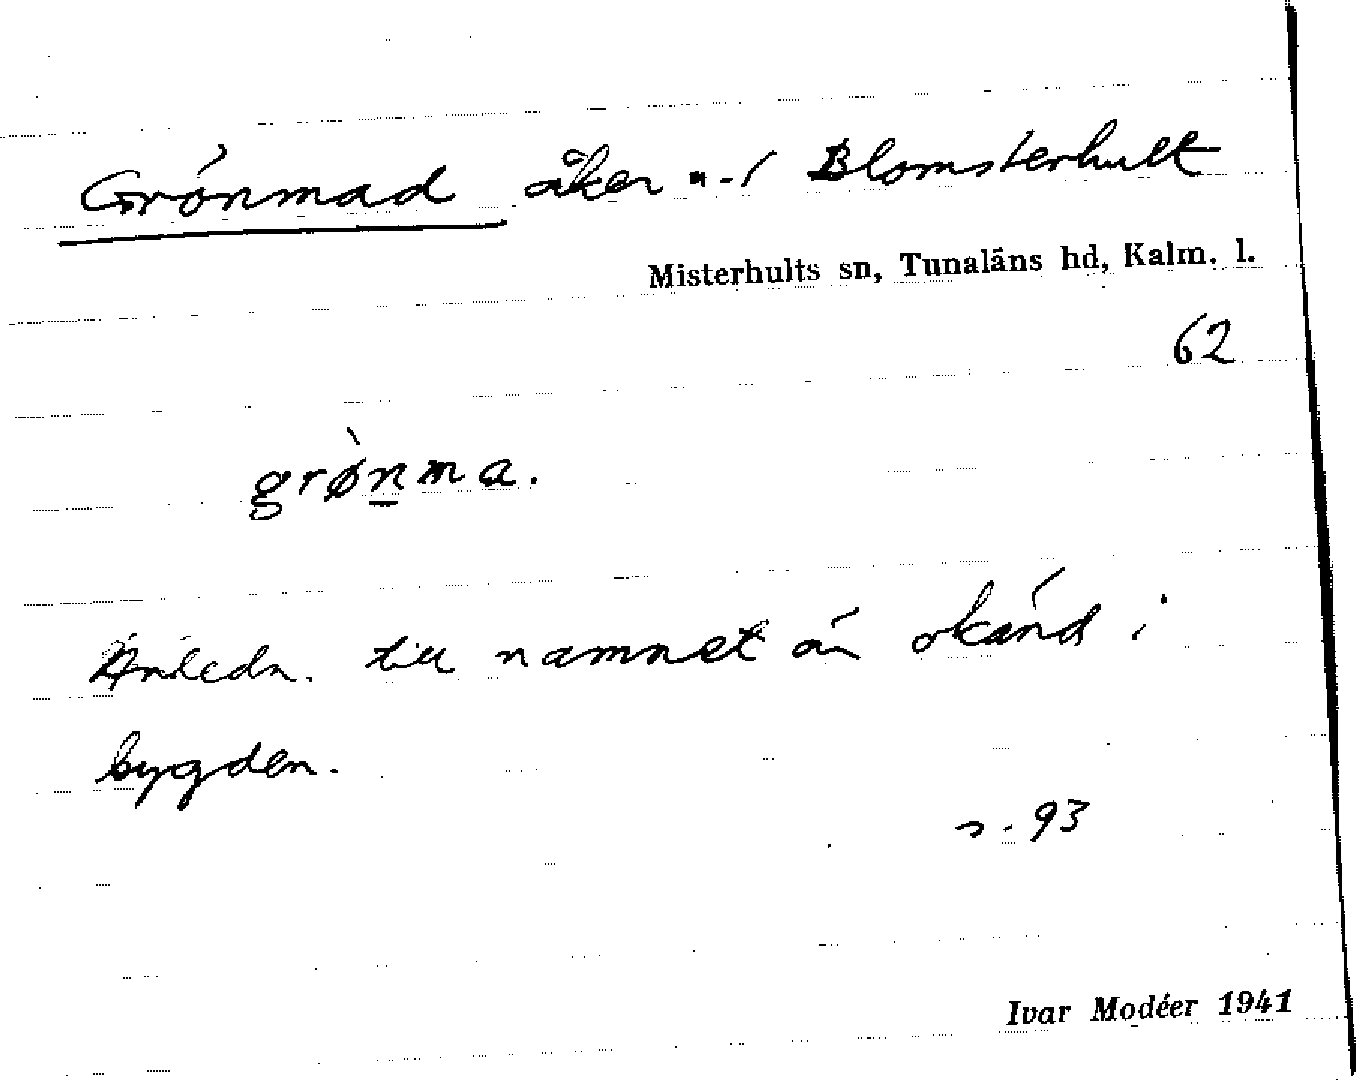 Grönmad åker
Blomsterhult
Misterhults sn, Tunaläns hd, Kalm. l.
62
grø̀n̲ma.
Anledn. till namnet är okänd i
bygden.
s. 93
Ivar Modéer 1941